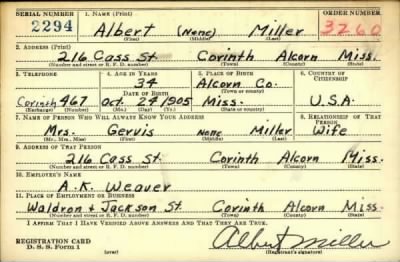 SERIAL NUMBER 1. NAME (Print) ORDER NUMBER
2294 Albert (None) Miller 3260
(First) (Middle) (Last)
2. ADDRESS (Print)
216 Cass St. Corinth Alcorn Miss.
(Number and street or R. F. D. number) (Town) (County) (State)
3. TELEPHONE 4. AGE IN YEARS 5. PLACE OF BIRTH 6. COUNTRY OF CITIZENSHIP
34 Alcorn Co.
DATE OF BIRTH (Town or county)
Corinth 467 Oct. 24 1905 Miss. U.S.A.
(Exchange) (Number) (Mo.) (Day) (Yr.) (State or country)
7. NAME OF PERSON WHO WILL ALWAYS KNOW YOUR ADDRESS 8. RELATIONSHIP OF THAT PERSON
Mrs. Gervis None Miller Wife
(Mr., Mrs., Miss) (First) (Middle) (Last)
9. ADDRESS OF THAT PERSON
216 Cass St. Corinth Alcorn Miss.
(Number and street or R. F. D. number) (Town) (County) (State)
10. EMPLOYER'S NAME
A.K. Weaver
11. PLACE OF EMPLOYMENT OR BUSINESS
Waldron + Jackson St. Corinth Alcorn Miss.
(Number and street or R. F. D. number) (Town) (County) (State)
I AFFIRM THAT I HAVE VERIFIED ABOVE ANSWERS AND THAT THEY ARE TRUE.
REGISTRATION CARD
D. S. S. Form 1 (over) Albert Miller
(Registrant's signature)